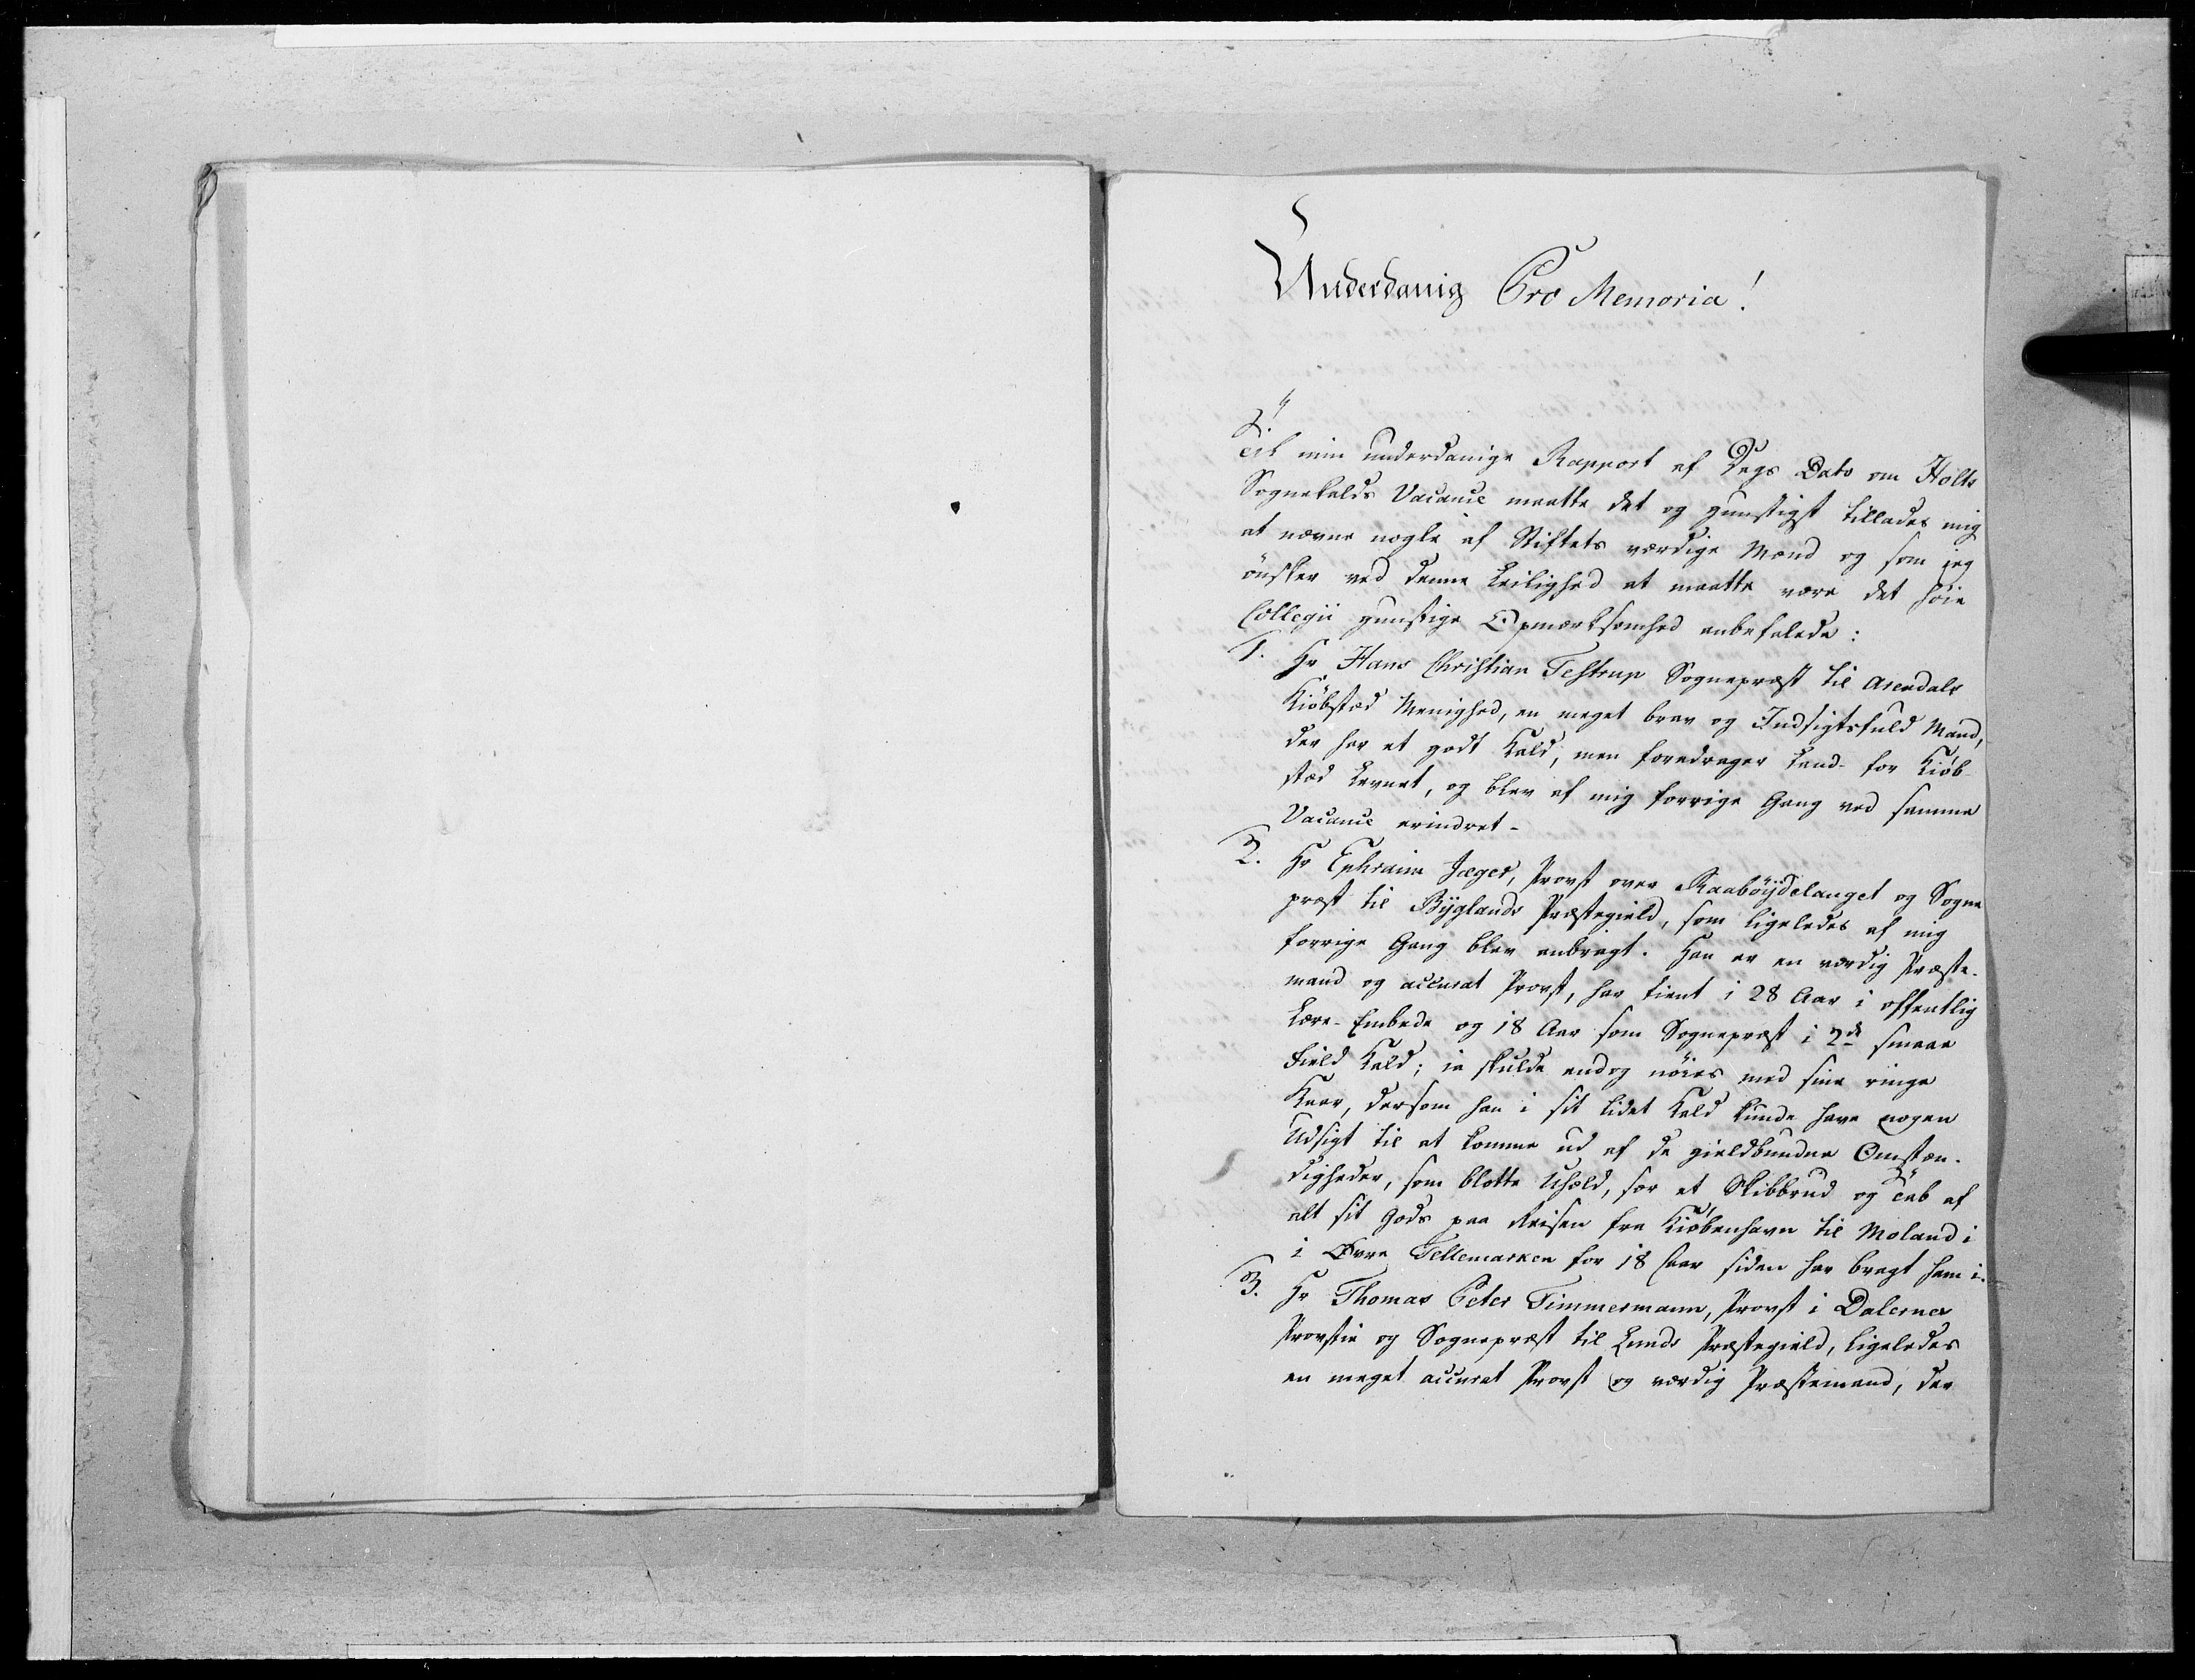 Underdanig Pro Memoria!
Til min underdanige Rapport af Dags Dato om Holts
Sognekalds Vacance maatte det og gunstigst tillades mig
at nævne nogle af Stiftets værdige Mænd og som jeg
ønsker ved denne Leilighed at maatte være det høie
Collegii gunstige Opmærksomhed anbefalede:
1. Hr Hans Christian Testrup Sognepræst til Arendals
Kiöbstæd Menighed, en meget brav og Indsigtsfuld Mand,
der har et godt Kald, men foredrager Land- for Kiöb-
stæd Levnet, og blev af mig forrige Gang ved samme
Vacance erindret-
2. Hr Ephraim Jæger, Provst over Raaböijdelauget og Sogne
præst til Bijglands Præstegield, som ligeledes af mig
forrige Gang blev anbragt. Han er en værdig Præste-
mand og accurat Provst, har tient i 28 Aar i offentlig
Lære-Embede og 18 Aar som Sognepræst i 2de smaae
Field Kald; ja skulde endog nöies med sine ringe
Kaar, dersom han i sit lidet Kald kunde have nogen
Udsigt til at komme ud af de gieldbundne Omstæn-
digheder, som blotte Uheld, sær et Skibbrud og Tab af
alt sit Gods paa Reisen fra Kiöbenhavn til Moland i
i Övre Tellemarken for 18 Aar siden har bragt ham i.
3. Hr Thomas Peter Timmermann, Provst i Dalernes
Provstie og Sognepræst til Lunds Præstegield, ligeledes
en meget accurat Provst og værdig Præstemand, der